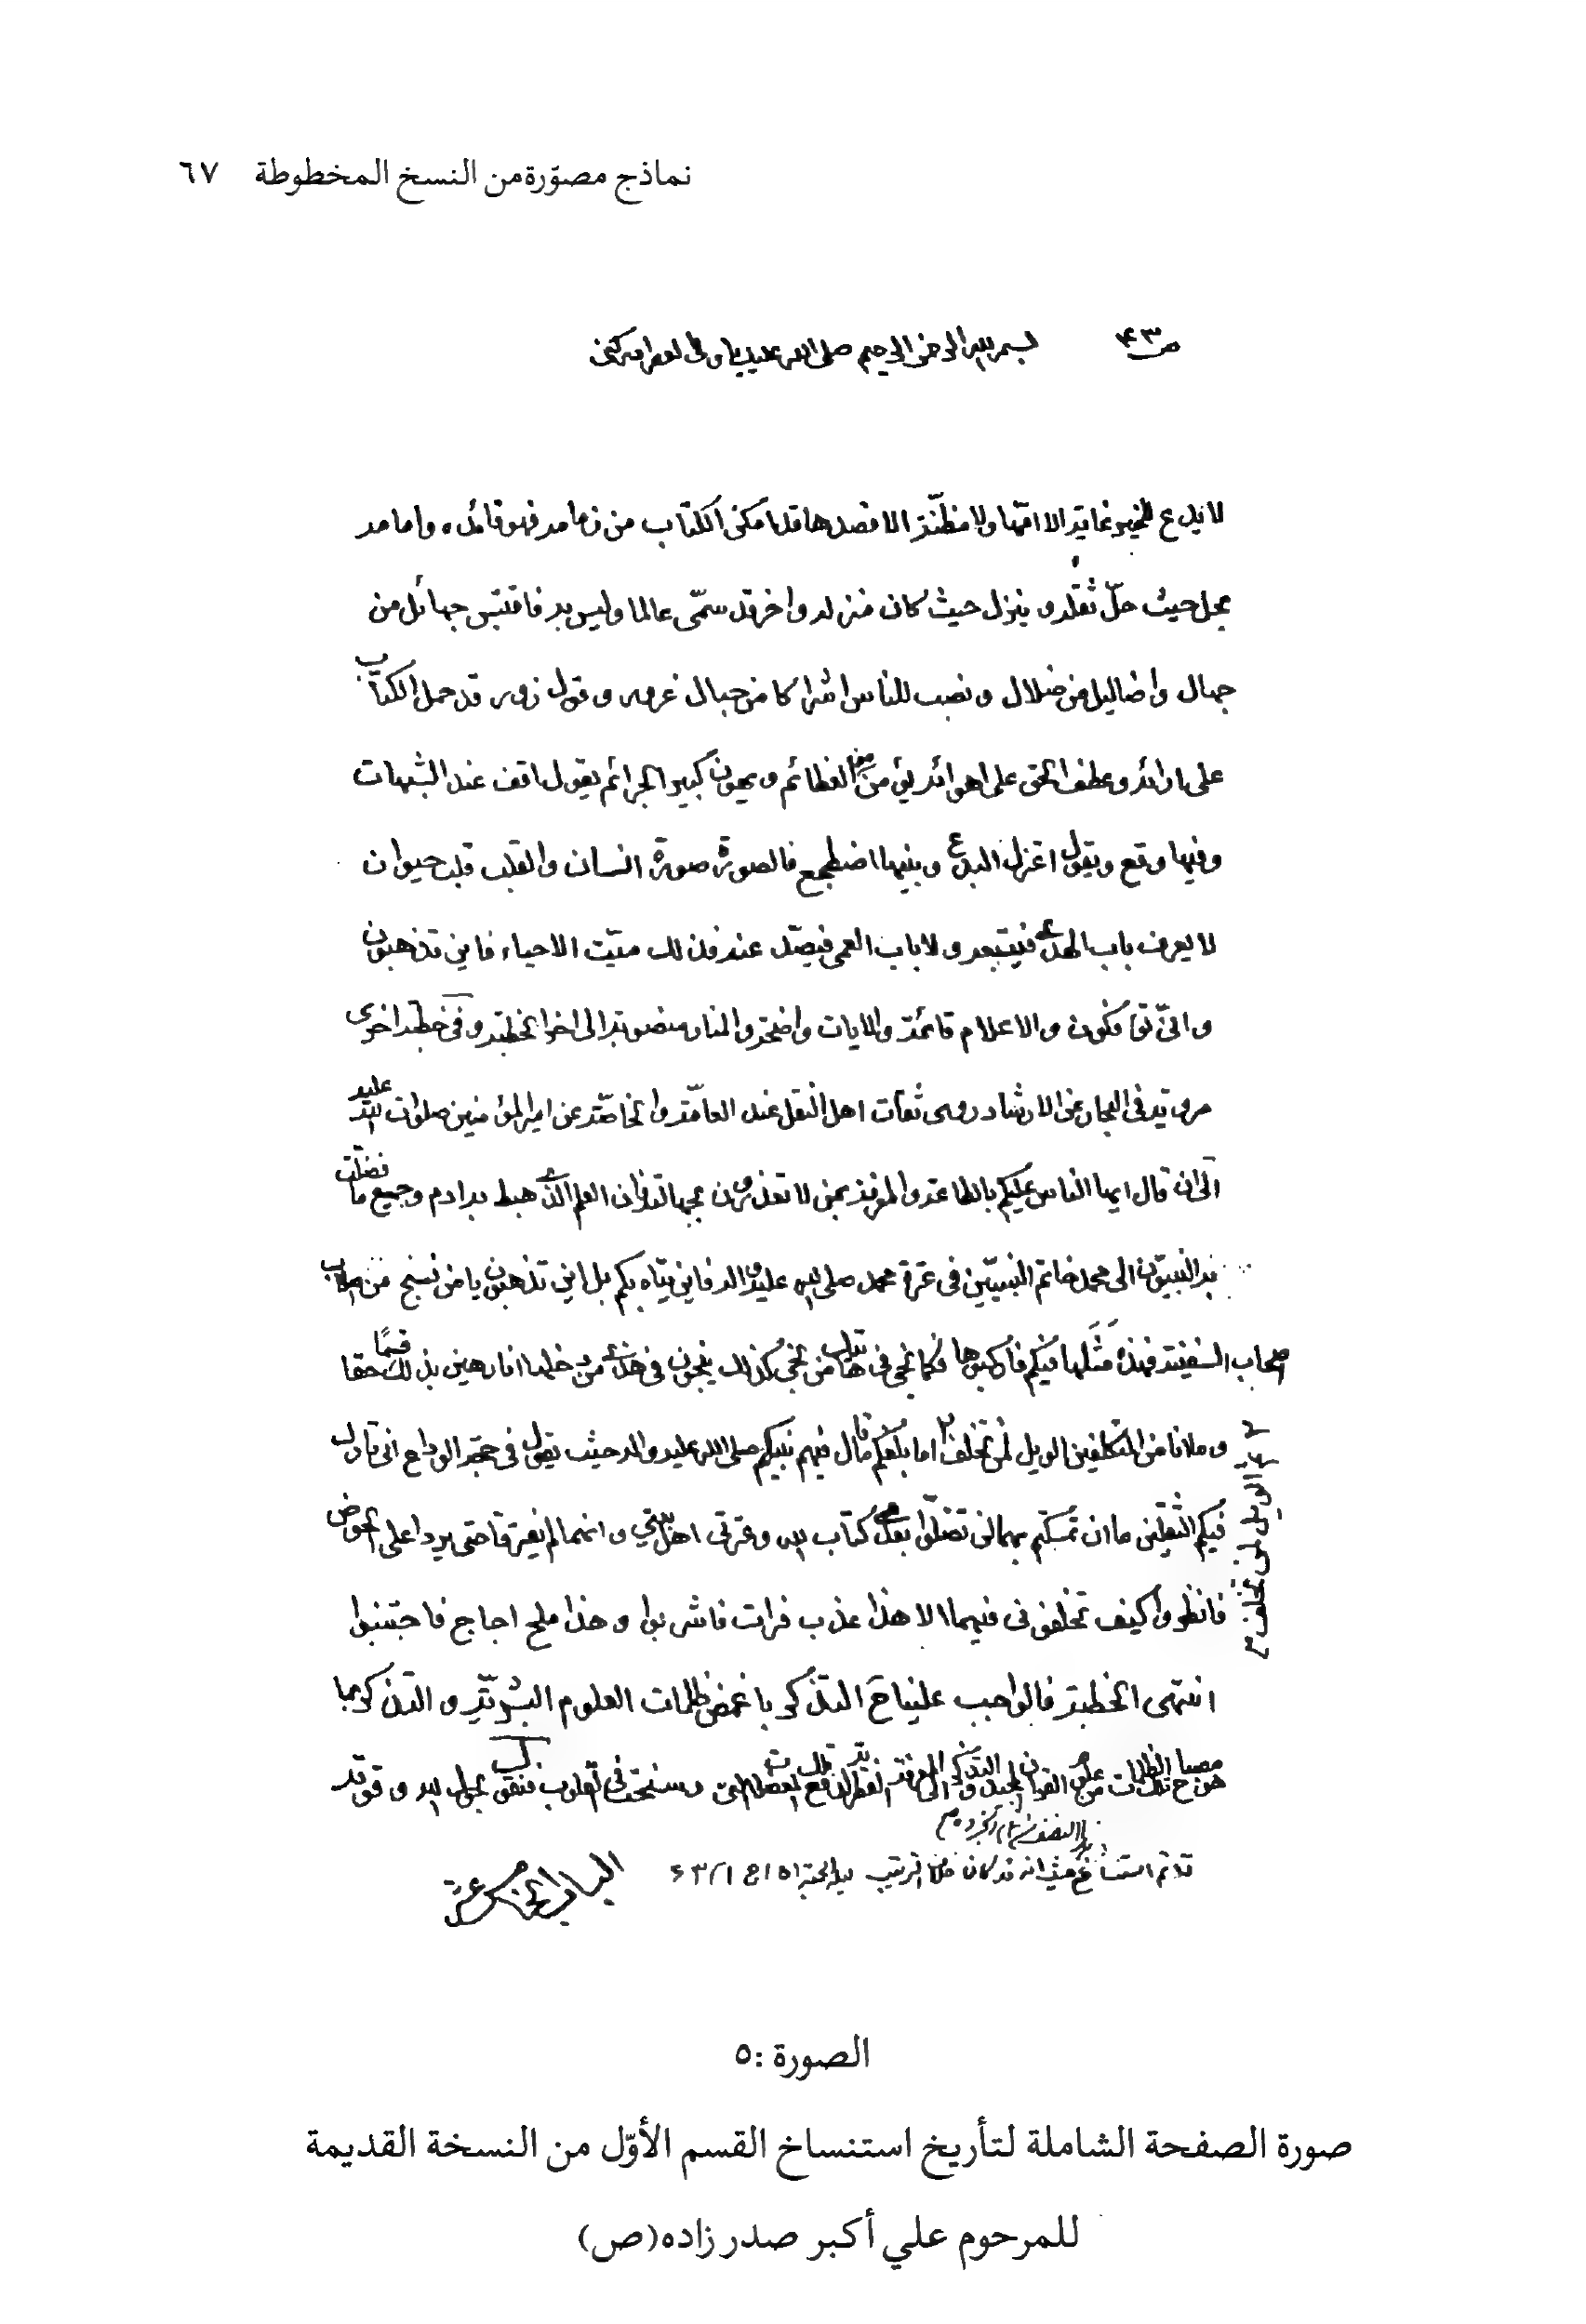 نماذج مصوّرة من النسخ المخطوطة ٦٧
ص ۴۳
بسم الله الرحمن الرحيم صلى الله عليك يا ولى العصر ادركنى
لا يدع للخير غاية الا امّها ولا مظنّة الا قصدها قد امكن الكتاب من زمامه فهو قائده وامامه
يحل حيث حلّ ثقله و ينزل حيث كان منزله واخر قد سمّى عالما وليس به فاقتبس جهائل من
جهال واضاليل من ضلال و نصب للناس اشراكا من حبال غرور و قول زور قد حمل الكتاب
على ارائه و عطف الحق على اهوائه يؤمن من العظائم و يهون كبير الجرائم يقول اقف عند الشبهات
وفيها وقع ويقول اعتزل البدع وبينها اضطجع فالصورة صورة انسان والقلب قلب حيوان
لا يعرف باب الهدى فيتبعه ولا باب العمى فيصدّ عنه فذلك ميّت الاحياء فاين تذهبون
وانّى تؤفكون والاعلام قائمة والايات واضحة والمنار منصوبة الى اخر الخطبة و فى خطبة اخرى
مروية فى البحار عن الارشاد روى ثقات اهل النقل عند العامّة والخاصّة عن امير المؤمنين صلوات الله عليه
الى ان قال ايها الناس عليكم بالطاعة والمعرفة بمن لا تعذرون بجهالته فان العلم الذى هبط به ادم وجميع ما فضّلت
به النبيّون الى محمد خاتم النبييّن فى عترة محمد صلى الله عليه واله فاين يتاه بكم بل اين تذهبون يا من نسخ من اصلاب
اصحاب السفينة فهذه مثلها فيكم فاركبوها فكما نجى فى هاتيك من نجى كذلك ينجو فى هذى من دخلها انا رهين بذلك قسمًا حقا
وما انا من المتكلفين الويل لمن تخلف اما بلغكم ما قال فيهم نبيكم صلى الله عليه واله حيث يقول فى حجة الوداع انى تارك
ثم الويل لمن تخلف م
فيكم الثقلين ما ان تمسكتم بهما لن تضلّوا بعدى كتاب الله وعترتى اهل بيتى وانهما لم يفترقا حتى يردا على الحوض
فانظروا كيف تخلفونى فيهما الا هذا عذب فرات فاشربوا وهذا ملح اجاج فاجتنبوا
انتهى الخطبة فالواجب علينا ح التذكر باغمض ظلمات العلوم البشريّة و التذكر بما
قد تم استنساخ
الصورة :٥
صورة الصفحة الشاملة لتأريخ استنساخ القسم الأوّل من النسخة القديمة
للمرحوم علي أكبر صدر زاده(ص)